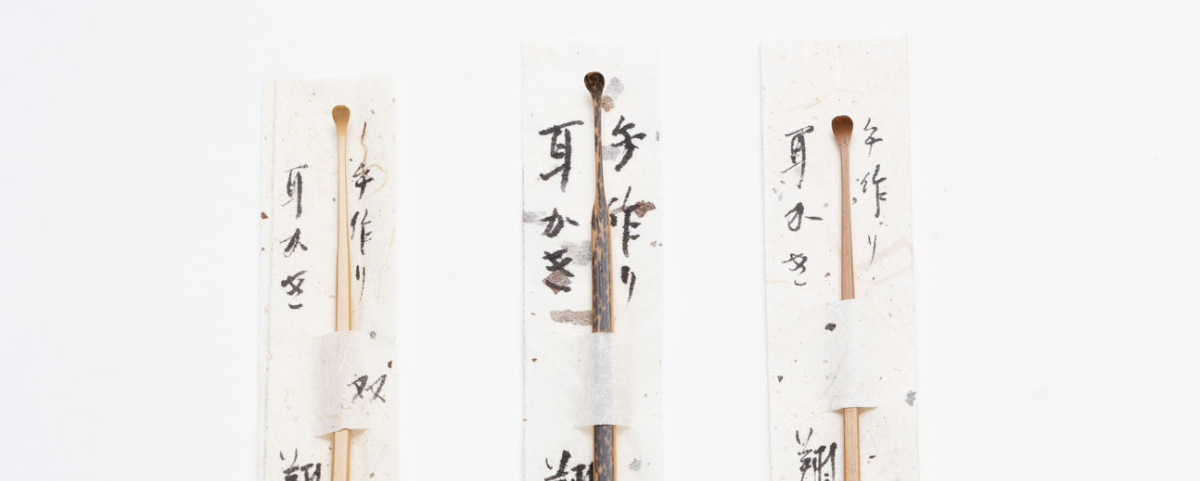 手作り
耳かき
双
翔
手作り
耳かき
翔
手作り
耳かき
翔